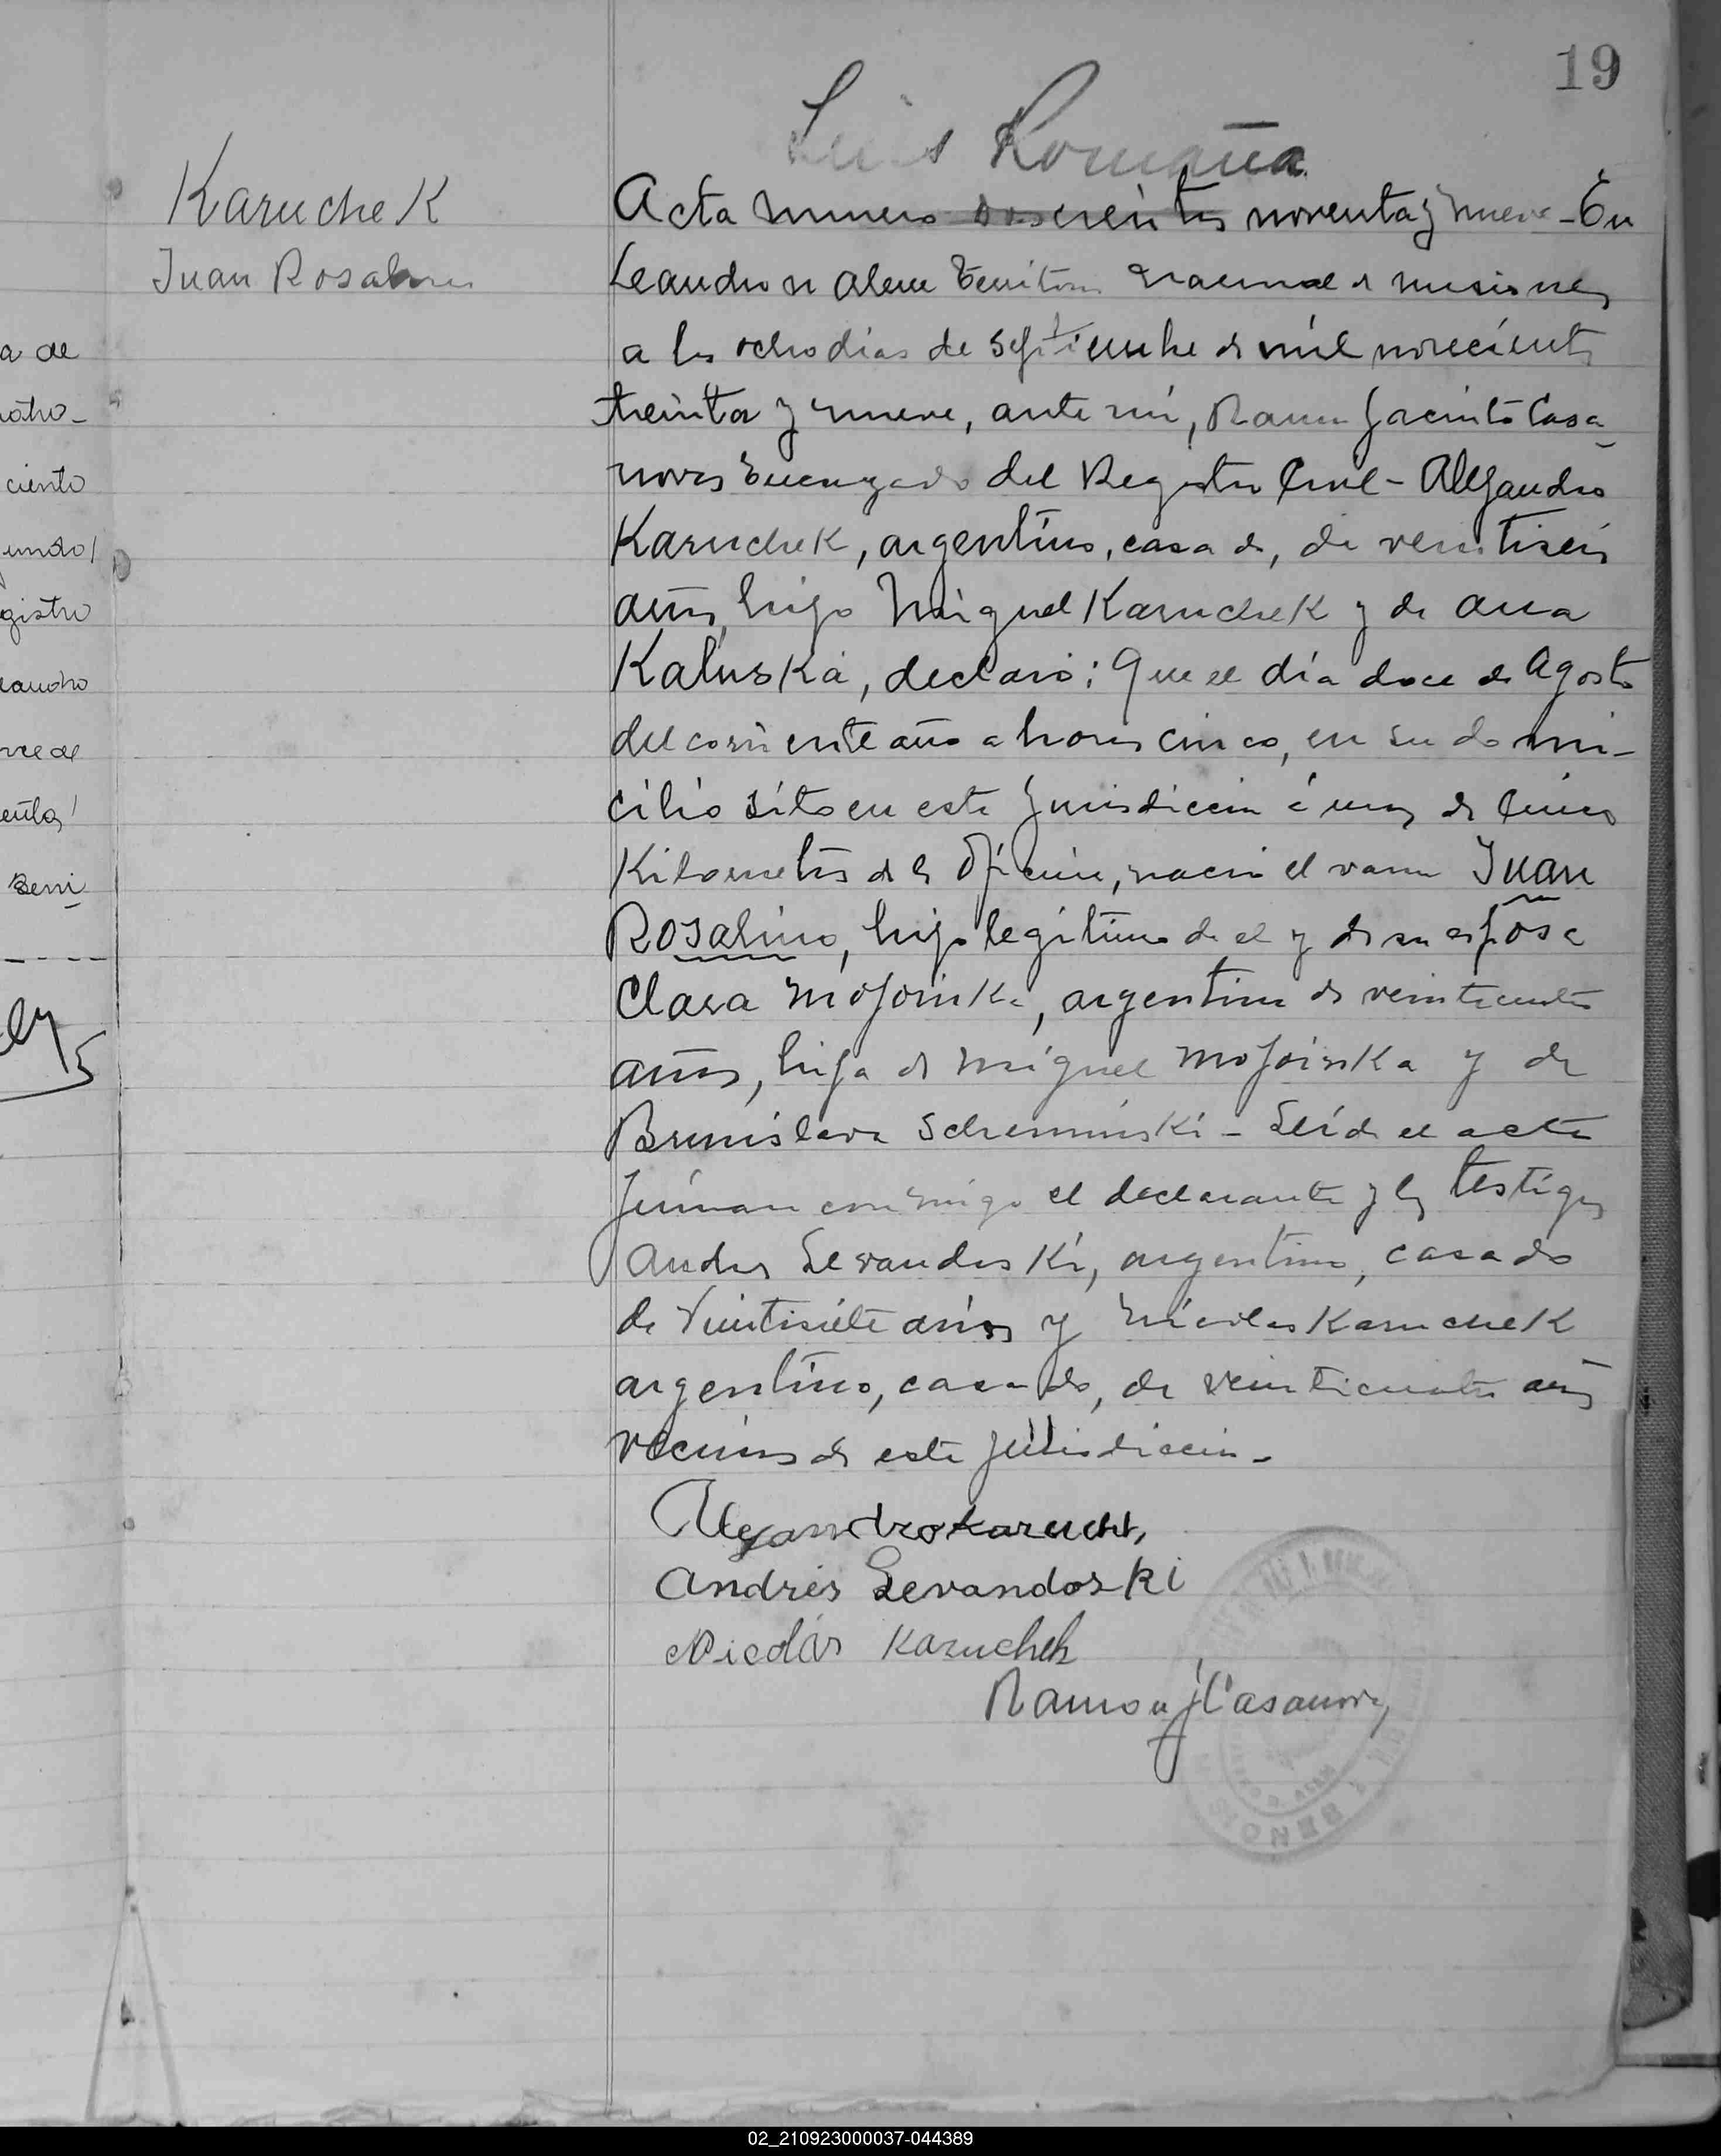 19
Luis Romaña
Karuchek
Juan Rosalino
a de
ciento
gistro
Acta numero doscientos noventa y nueve - En
Leandro N Alem Territorio Nacional de Misiones
a los ocho dias de Septiembre de mil novecientos
treinta y nueve, ante mí, Ramon Jacinto Casa
novas Encargado del Registro Civil - Alejandro
Karuchek, argentino, casado, de veintiseis
años, hijo Miguel Karuchek y de Ana
Kaluska, declaró: Que el día doce de Agosto
del corriente año a horas cinco, en su domi-
cilio sito en esta jurisdiccion á unos de cinco
Kilometros de la Oficina, nació el varon Juan
Rosalino, hijo legitimo de el y de su esposa
Clara Mojoinka, argentina de veinticuatro
años, hija de Miguel Mojoinka y de
Brunislava Scheminski - Leída el acta
firman conmigo el declarante y los testigos
Andres Levandoski, argentino, casado
de Veintisiete años y Nicolas Karuchek
argentino, casado, de veinticuatro años
vecinos de esta jurisdiccion -
Alejandro Karuchk,
Andrés Levandoski
Nicolás Karuchek
Ramon J Casanova
02_210923000037-044389